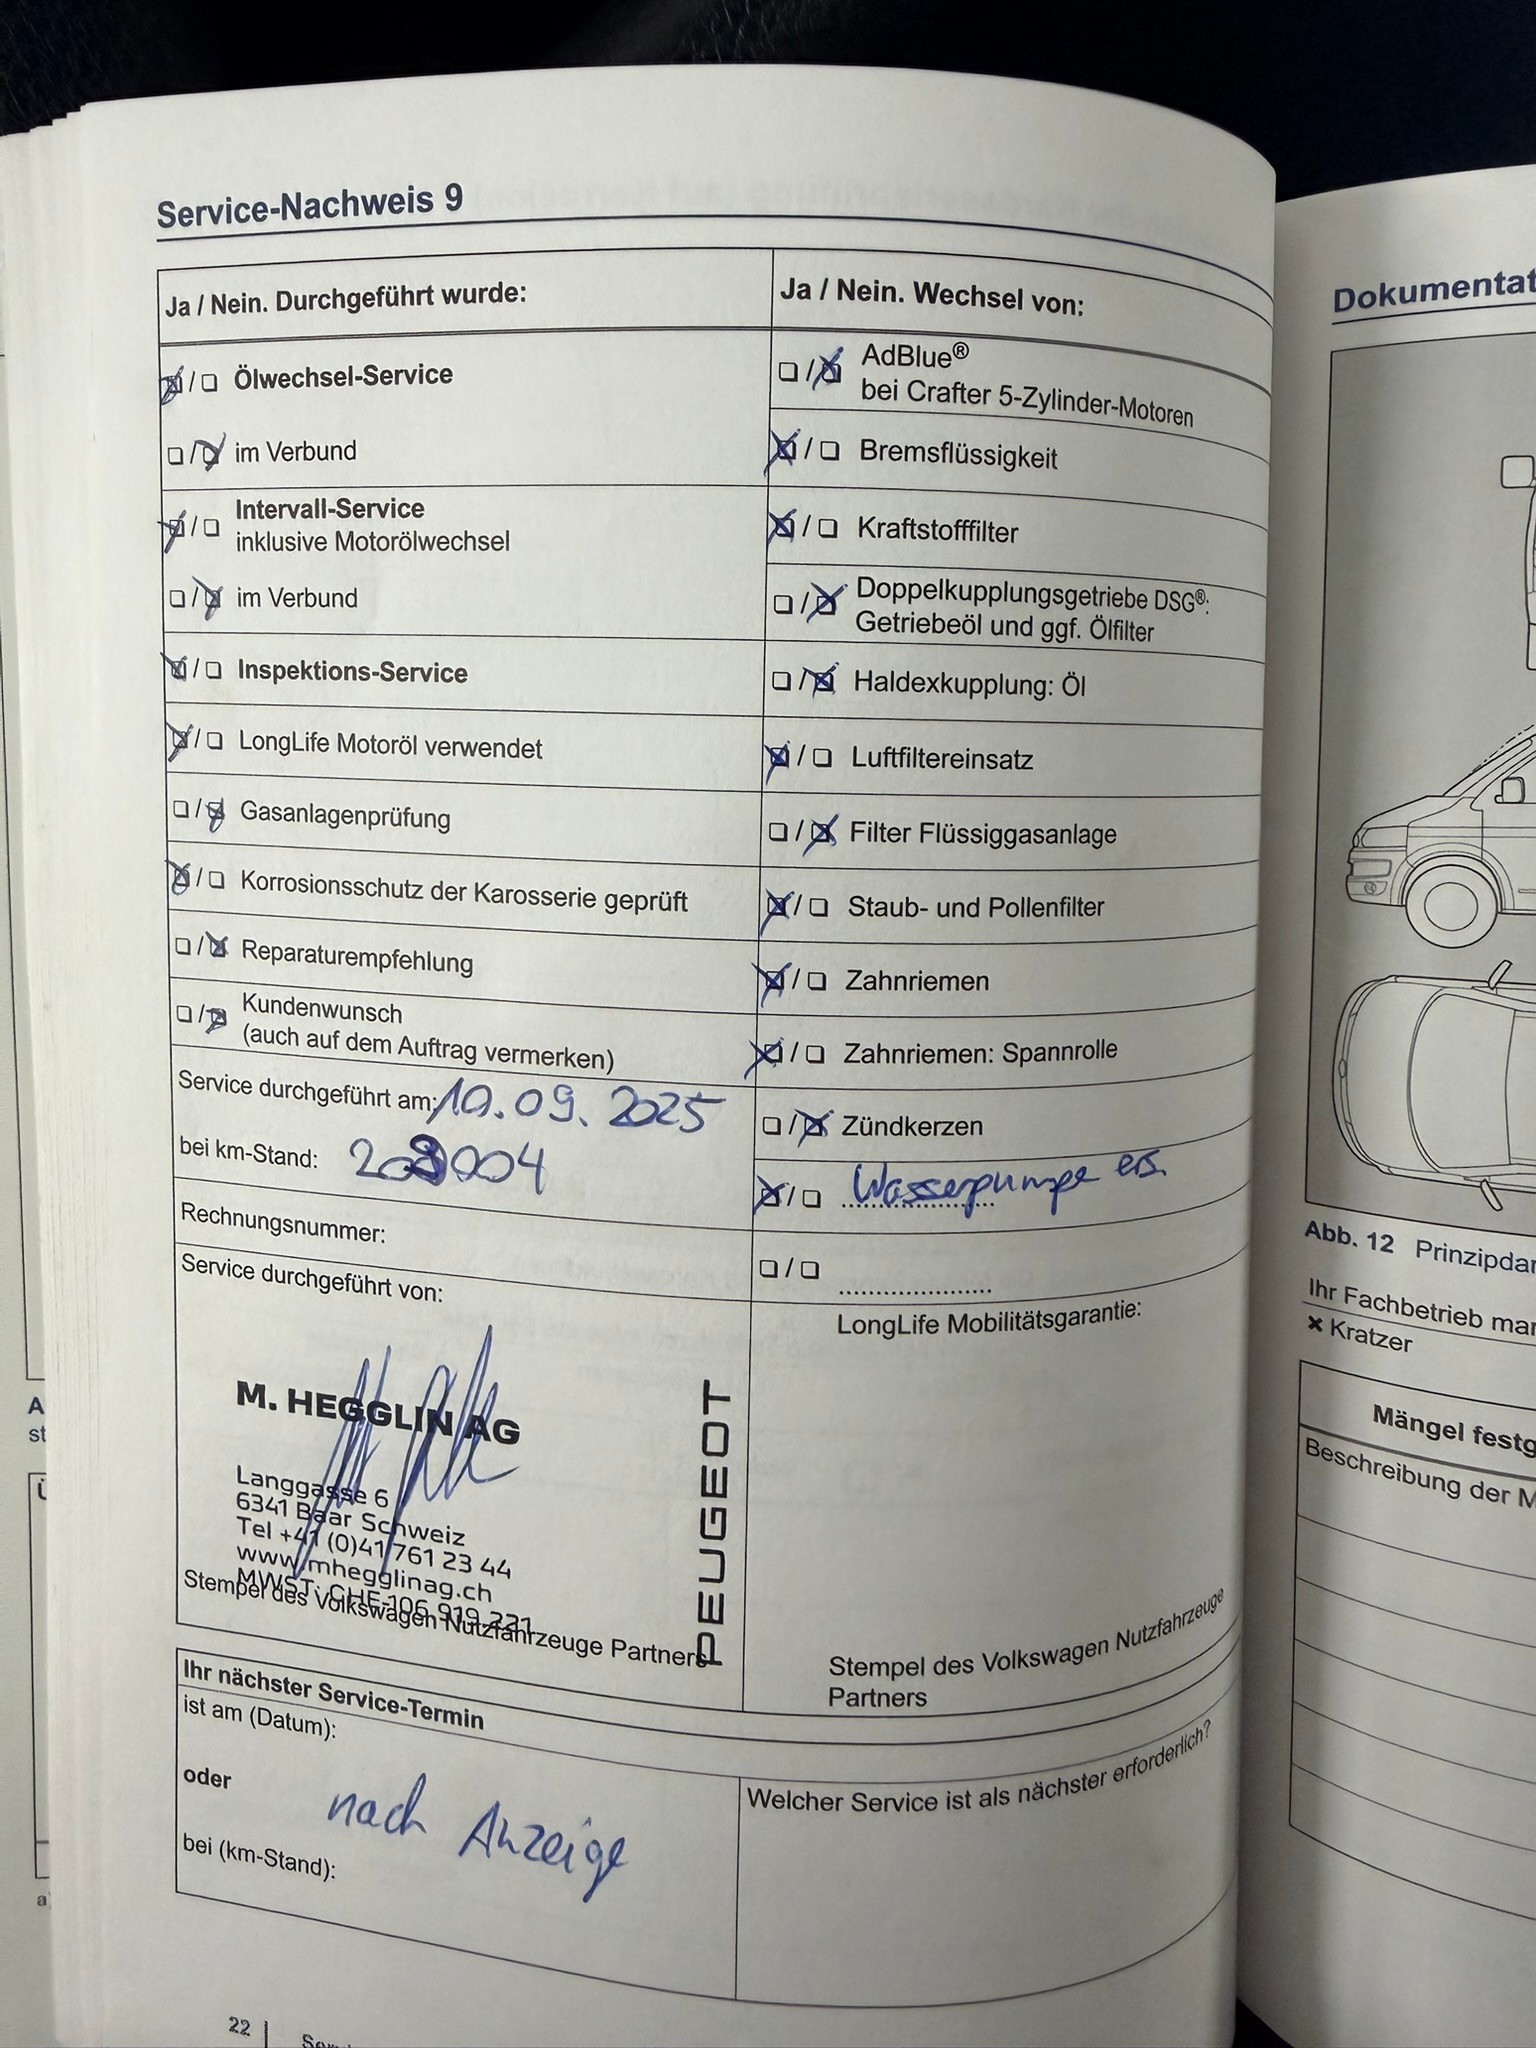 Service-Nachweis 9
Ja / Nein. Durchgeführt wurde:
Ölwechsel-Service
im Verbund
Intervall-Service
inklusive Motorölwechsel
im Verbund
Inspektions-Service
LongLife Motoröl verwendet
Gasanlagenprüfung
Korrosionsschutz der Karosserie geprüft
Reparaturempfehlung
Kundenwunsch
(auch auf dem Auftrag vermerken)
Service durchgeführt am: 10.09.2025
bei km-Stand:
Rechnungsnummer:
Service durchgeführt von:
M. HEGGLIN AG
Langgasse 6
6341 Baar Schweiz
Tel +41 (0)41 761 23 44
www.mhegglinag.ch
MWST: CHE-106.919.221
PEUGEOT
Stempel des Volkswagen Nutzfahrzeuge Partners
Ja / Nein. Wechsel von:
AdBlue®
bei Crafter 5-Zylinder-Motoren
Bremsflüssigkeit
Kraftstofffilter
Doppelkupplungsgetriebe DSG®:
Getriebeöl und ggf. Ölfilter
Haldexkupplung: Öl
Luftfiltereinsatz
Filter Flüssiggasanlage
Staub- und Pollenfilter
Zahnriemen
Zahnriemen: Spannrolle
Zündkerzen
Wasserpumpe ers.
LongLife Mobilitätsgarantie:
Stempel des Volkswagen Nutzfahrzeuge
Partners
Ihr nächster Service-Termin
ist am (Datum):
oder
nach Anzeige
bei (km-Stand):
Welcher Service ist als nächster erforderlich?
22
Dokumentat
Abb. 12 Prinzipdar
Ihr Fachbetrieb mar
× Kratzer
Mängel festg
Beschreibung der M